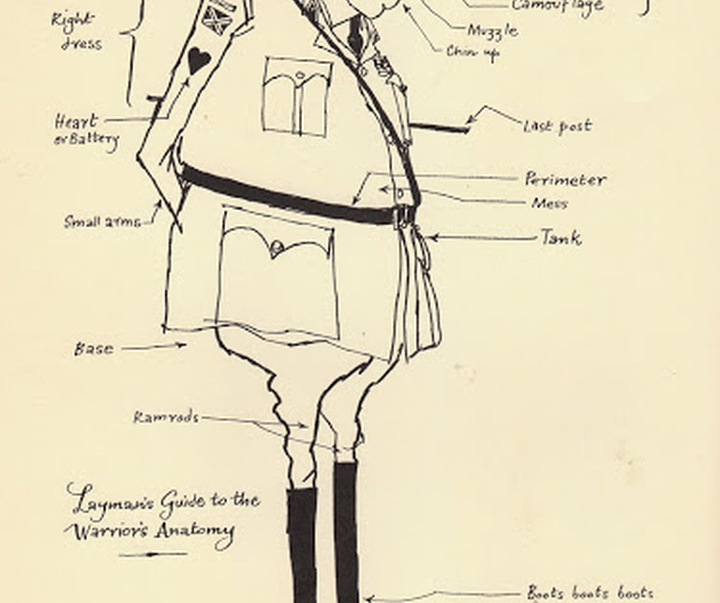 Camouflage
Muzzle
Chin up
Right
dress
Heart
or Battery
Last post
Perimeter
Mess
Small arms
Tank
Base
Ramrods
Layman's Guide to the
Warrior's Anatomy
Boots boots boots